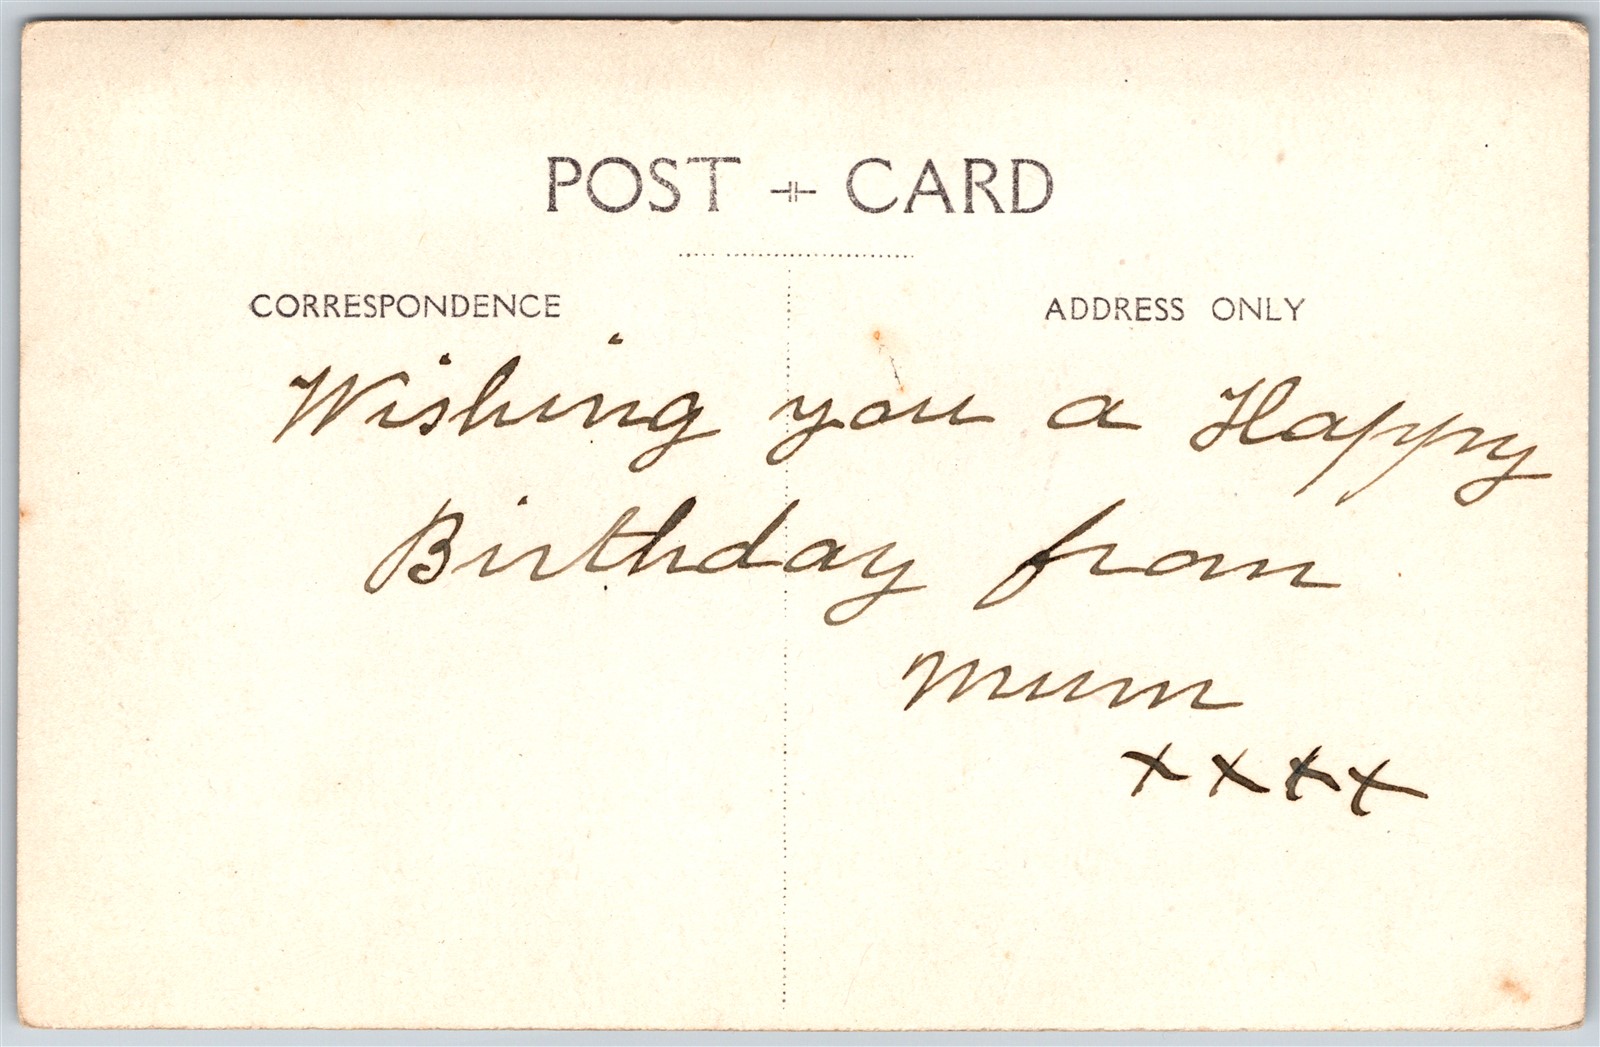 POST + CARD
CORRESPONDENCE
ADDRESS ONLY
Wishing you a Happy
Birthday from
Mum
xxxx